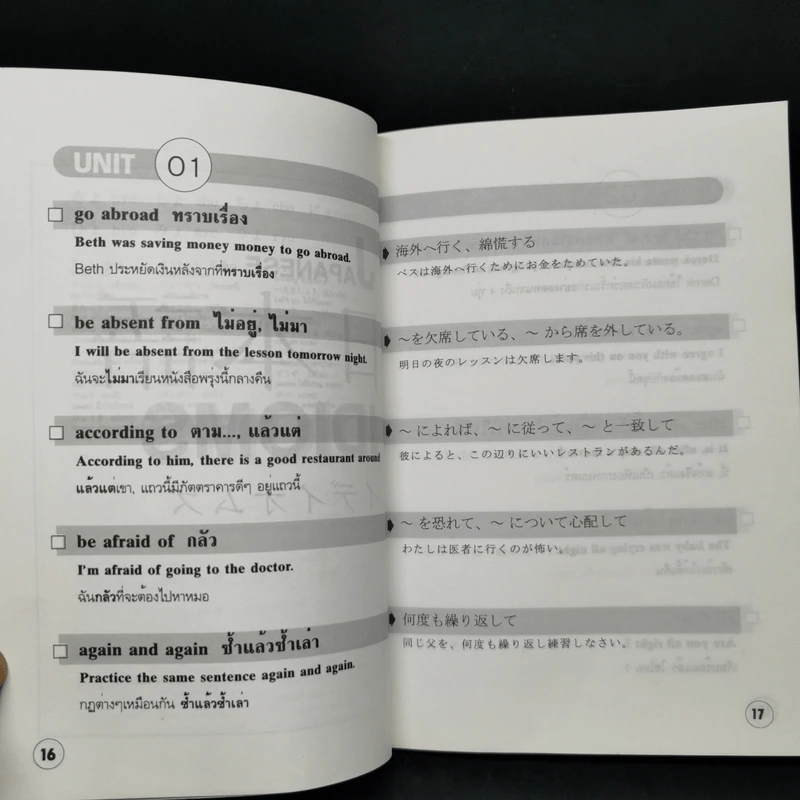 UNIT 01
go abroad ทราบเรื่อง
Beth was saving money money to go abroad.
Beth ประหยัดเงินหลังจากที่ทราบเรื่อง
be absent from ไม่อยู่, ไม่มา
I will be absent from the lesson tomorrow night.
ฉันจะไม่มาเรียนหนังสือพรุ่งนี้กลางคืน
according to ตาม..., แล้วแต่
According to him, there is a good restaurant around
แล้วแต่เขา, แถวนี้มีภัตตราคารดีๆ อยู่แถวนี้
be afraid of กลัว
I'm afraid of going to the doctor.
ฉันกลัวที่จะต้องไปหาหมอ
again and again ซ้ำแล้วซ้ำเล่า
Practice the same sentence again and again.
กฏต่างๆเหมือนกัน ซ้ำแล้วซ้ำเล่า
16
海外へ行く、綿慌する
ベスは海外へ行くためにお金をためていた。
～を欠席している、～から席を外している。
明日の夜のレッスンは欠席します。
～によれば、～に従って、～と一致して
彼によると、この辺りにいいレストランがあるんだ。
～を恐れて、～について心配して
わたしは医者に行くのが怖い。
何度も繰り返して
同じ父を、何度も繰り返し練習しなさい。
17